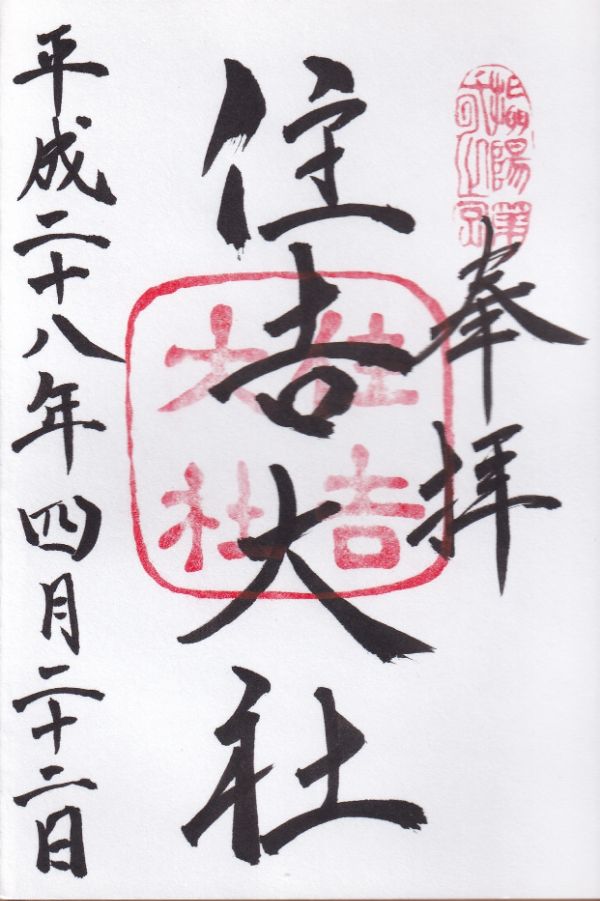 奉拝
住吉大社
住吉大社
平成二十八年四月二十二日